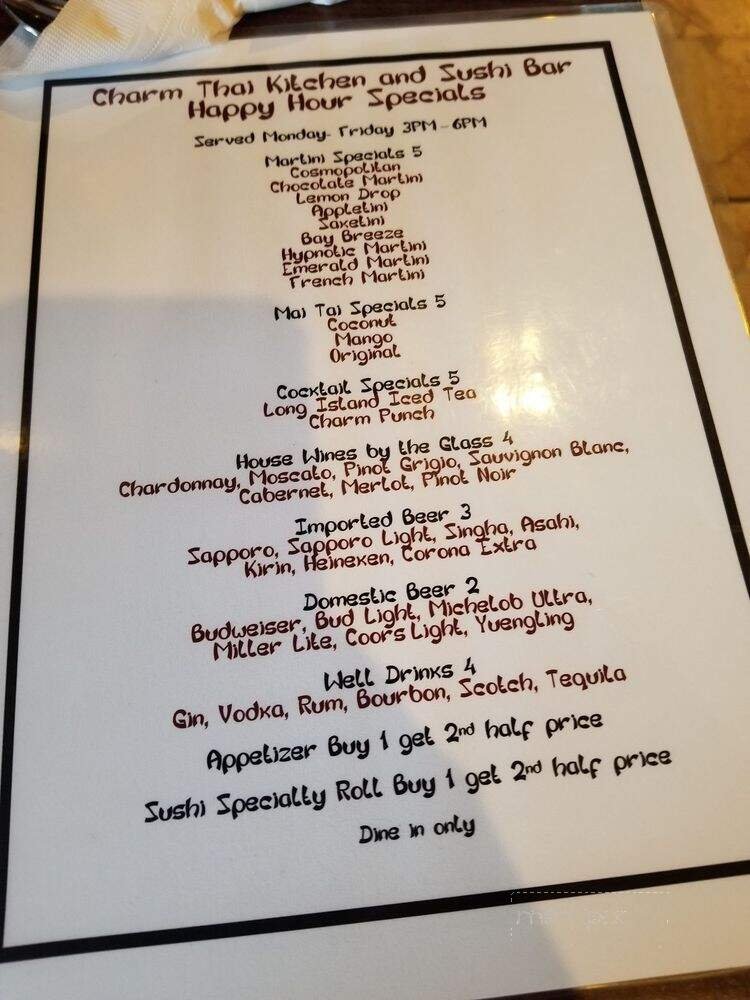 Charm Thai Kitchen and Sushi Bar
Happy Hour Specials
Served Monday- Friday 3PM - 6PM
Martini Specials 5
Cosmopolitan
Chocolate Martini
Lemon Drop
Appletini
Saketini
Bay Breeze
Hypnotic Martini
Emerald Martini
French Martini
Mai Tai Specials 5
Coconut
Mango
Original
Cocktail Specials 5
Long Island Iced Tea
Charm Punch
House Wines by the Glass 4
Chardonnay, Moscato, Pinot Grigio, Sauvignon Blanc,
Cabernet, Merlot, Pinot Noir
Imported Beer 3
Sapporo, Sapporo Light, Singha, Asahi,
Kirin, Heineken, Corona Extra
Domestic Beer 2
Budweiser, Bud Light, Michelob Ultra,
Miller Lite, Coors Light, Yuengling
Well Drinks 4
Gin, Vodka, Rum, Bourbon, Scotch, Tequila
Appetizer Buy 1 get 2nd half price
Sushi Specialty Roll Buy 1 get 2nd half price
Dine in only